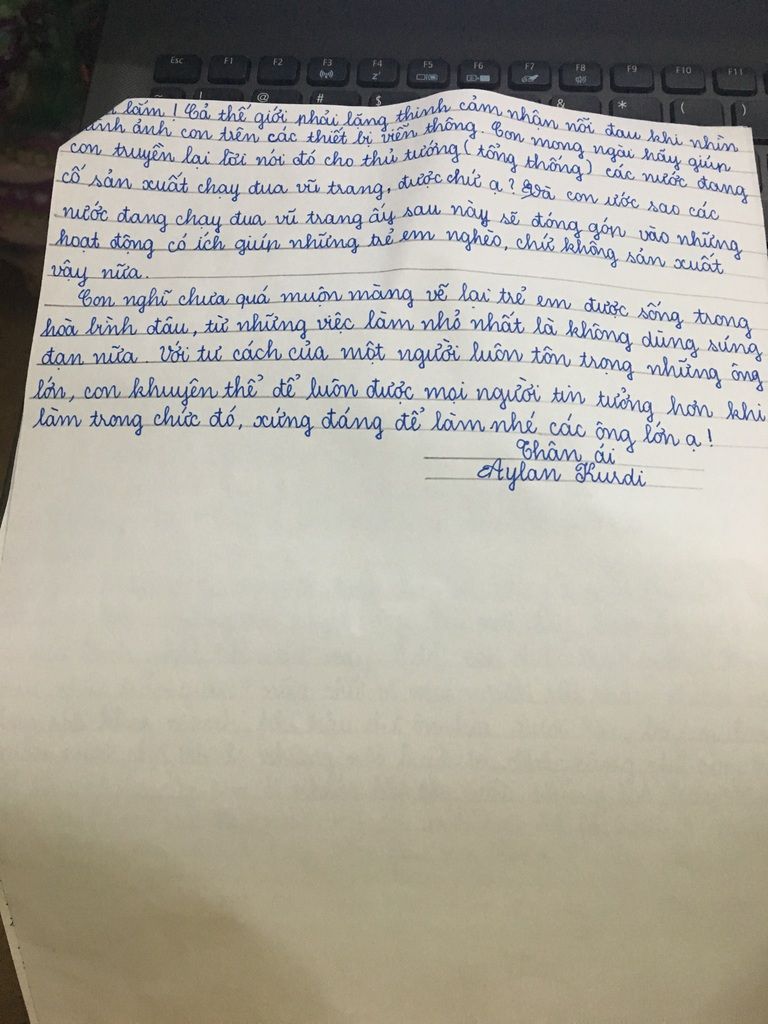 Esc F1 F2 F3 F4 F5 F6 F7 F8 F9 F10 F11
~ ! @ # $ & * ( )
lắm ! Cả thế giới phải lặng thinh cảm nhận nỗi đau khi nhìn
ảnh con trên các thiết bị viễn thông. Con mong ngài hãy giúp
con truyền lại lời nói đó cho thủ tướng ( tổng thống ) các nước đang
cố sản xuất chạy đua vũ trang, được chứ ạ ? Và con ước sao các
nước đang chạy đua vũ trang ấy sau này sẽ đóng góp vào những
hoạt động có ích giúp những trẻ em nghèo, chứ không sản xuất
vậy nữa.
Con nghĩ chưa quá muộn màng vẽ lại trẻ em được sống trong
hoà bình đâu, từ những việc làm nhỏ nhất là không dùng súng
đạn nữa. Với tư cách của một người luôn tôn trọng những ông
lớn, con khuyên thể để luôn được mọi người tin tưởng hơn khi
làm trong chức đó, xứng đáng để làm nhé các ông lớn ạ !
Thân ái
Aylan Kurdi